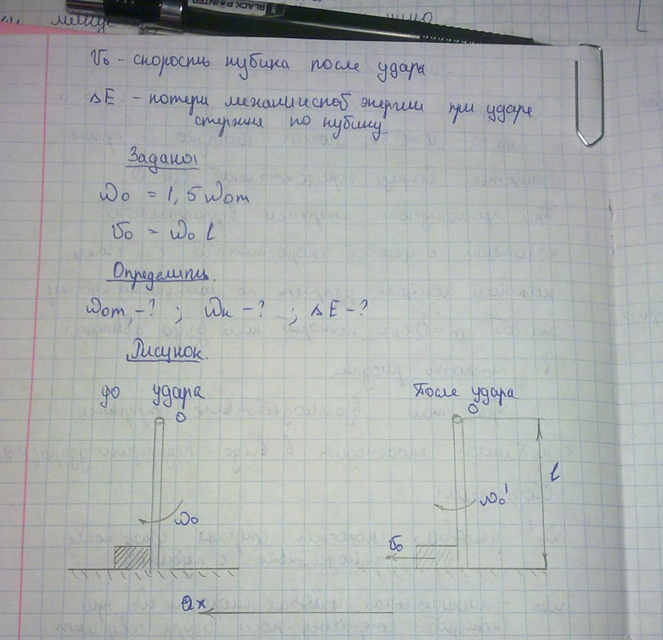 BLACK POINTER
V₀ - скорость кубика после удара
ΔE - потери механической энергии при ударе
стержня по кубику
Задано:
ω₀ = 1,5 ωom
V₀ = ω₀ l
Определить.
ωom - ? ; ωк - ? ; ΔE - ?
Рисунок.
до удара
После удара
O
O
ω₀
ω₀'
l
V₀
Ox